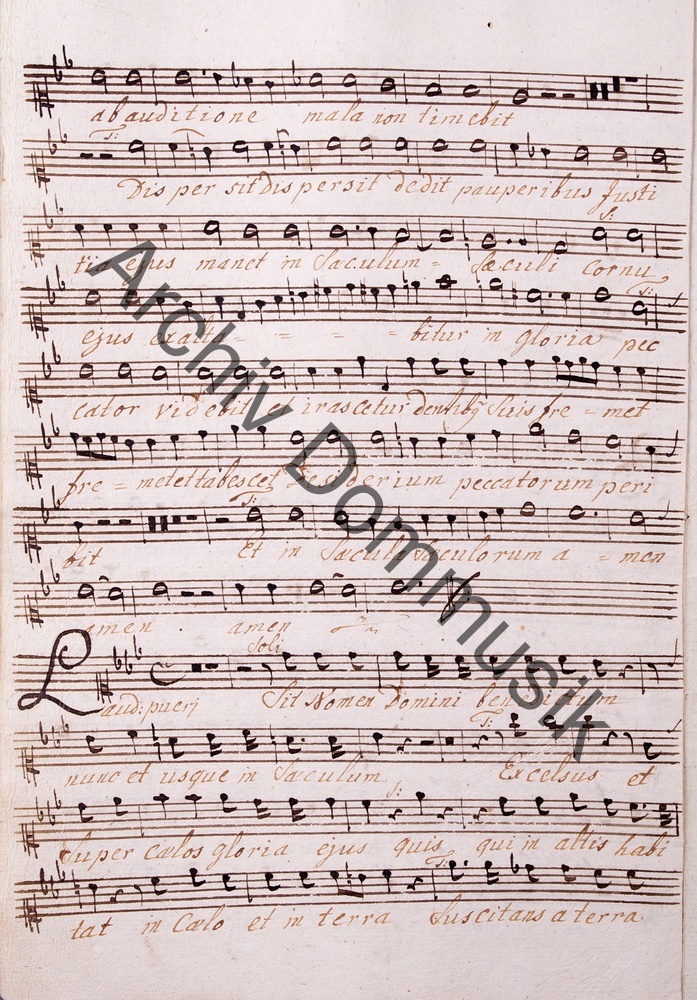 ab auditione mala non timebit
T:
Dis per sit Dis persit dedit pauperibus Justi
S:
tia ejus manet in Saeculum = Saeculi cornu
S:
ejus exalta = = = = bitur in gloria pec
cator videbit et irascetur dentibg Suis fre = met
fre = met et tabescet Desiderium peccatorum peri
T:
bit Et in Saecula Saeculorum a = men
amen amen
Soli
Laud: pueri Sit Nomen Domini benedictum
T:
nunc et usque in Saeculum, Excelsus et
S:
Super caelos gloria ejus quis, qui in altis habi
S:
tat in Caelo et in terra Suscitans a terra
Archiv Dommusik